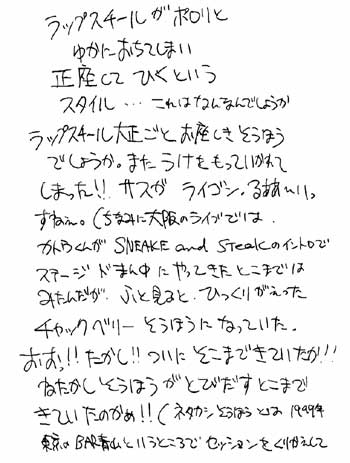 ラップスチールがポロリと
ゆかにおちてしまい
正座して ひくという
スタイル … これはなんなんでしょうか
ラップスチール大正ごと お座しき そうほう
でしょうか。また うけをもっていかれて
しまった!! サスが ライゴシ。るああいい
すねぇ。(ちなみに大阪のライブでは、
カトウくんが SNEAKE and Stealのイントロで
ステージ ドまん中に やってきた とこまでは
みたんだが、ふと見ると、ひっくりがえった
チャックベリー そうほうに なっていた。
おおっ!! たかし!! ついに そこまできていたか!!
ねたかし そうほうが とびだす とこまで
きていたのかぁ!! (ネタカシ そうほう とは 1999年
東京の BAR青山というところで セッションをくりかえして